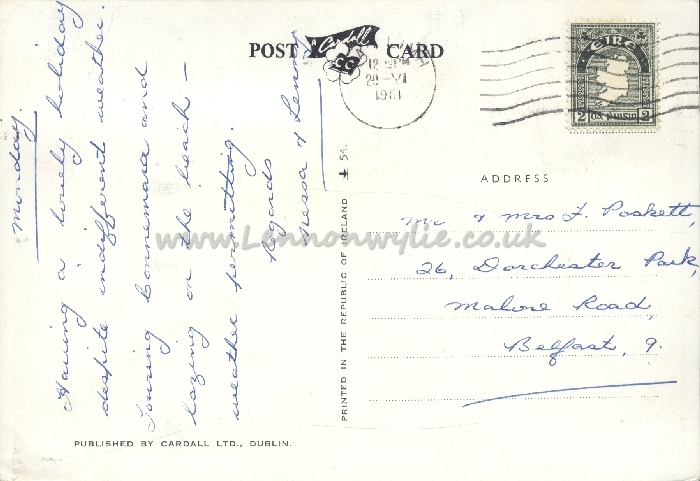 POST Cardall CARD
12 PM
20 VI
1961
EIRE
2 2
Monday.
Having a lovely holiday
despite indifferent weather.
Touring Connemara and
lazing on the beach –
weather permitting.
Regards
Nessa & Lenny
PRINTED IN THE REPUBLIC OF IRELAND 54.
ADDRESS
Mr & Mrs F. Poskett,
26, Dorchester Park,
Malone Road,
Belfast, 9.
PUBLISHED BY CARDALL LTD., DUBLIN.
www.Lennonwylie.co.uk